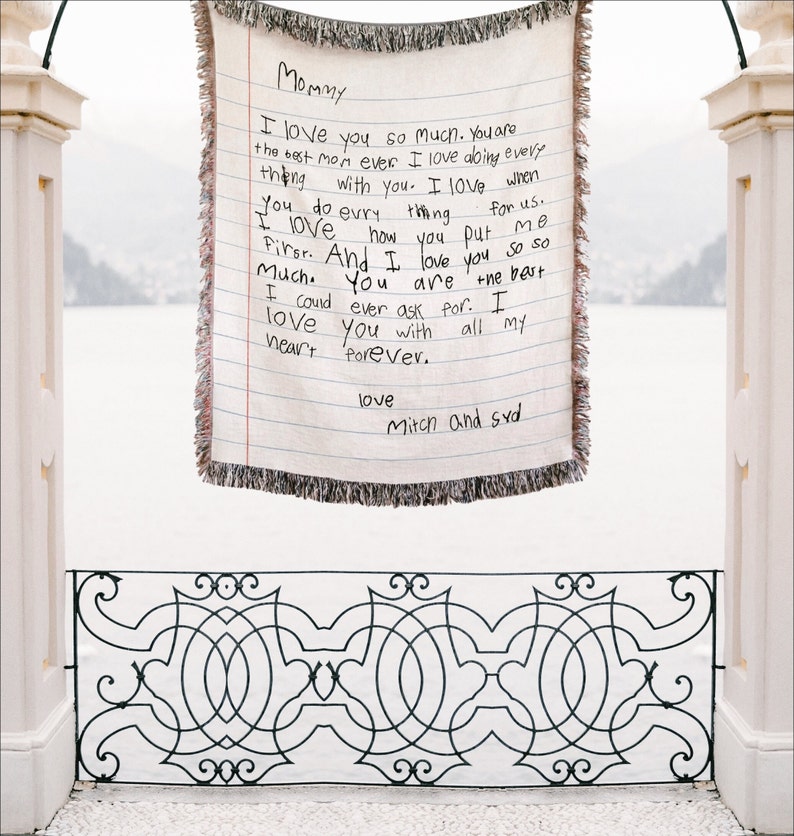 Mommy
I love you so much. You are
the best mom ever. I love doing every
thing with you. I love when
you do evry thing for us.
I love how you put me
first. And I love you so so
much. You are the best
I could ever ask for. I
love you with all my
heart forever.
love
Mitch and syd